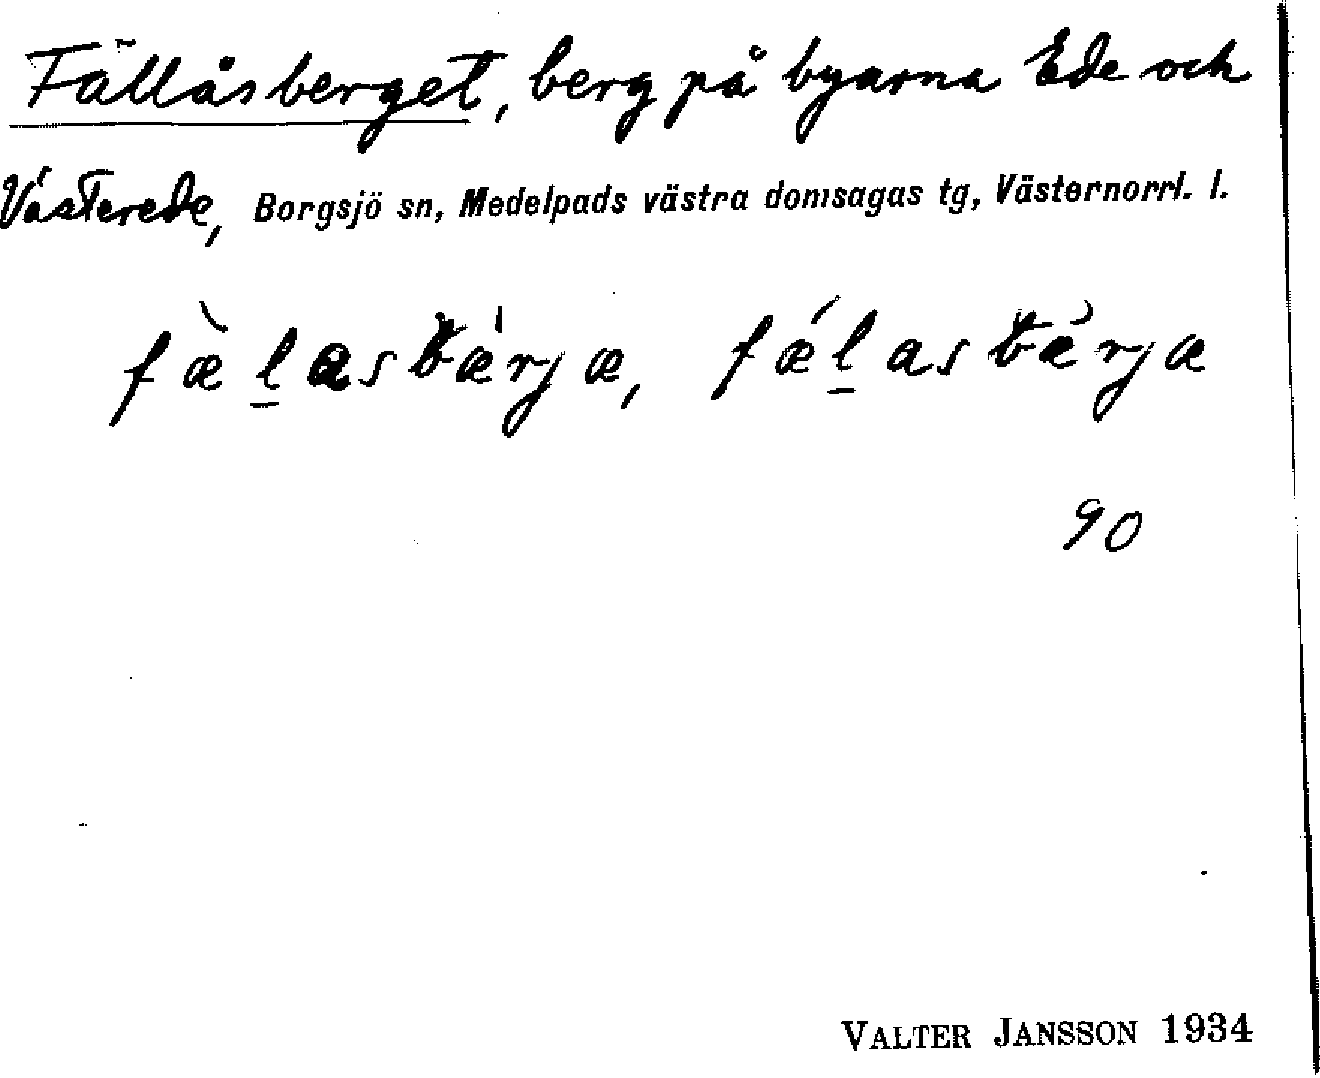 Fällåsberget, berg på byarna Ede och
Västerede, Borgsjö sn, Medelpads västra domsagas tg, Västernorrl. l.
fæ̀l̠asbæ̍rjæ, fǽl̠asbæ̀rjæ
90
VALTER JANSSON 1934